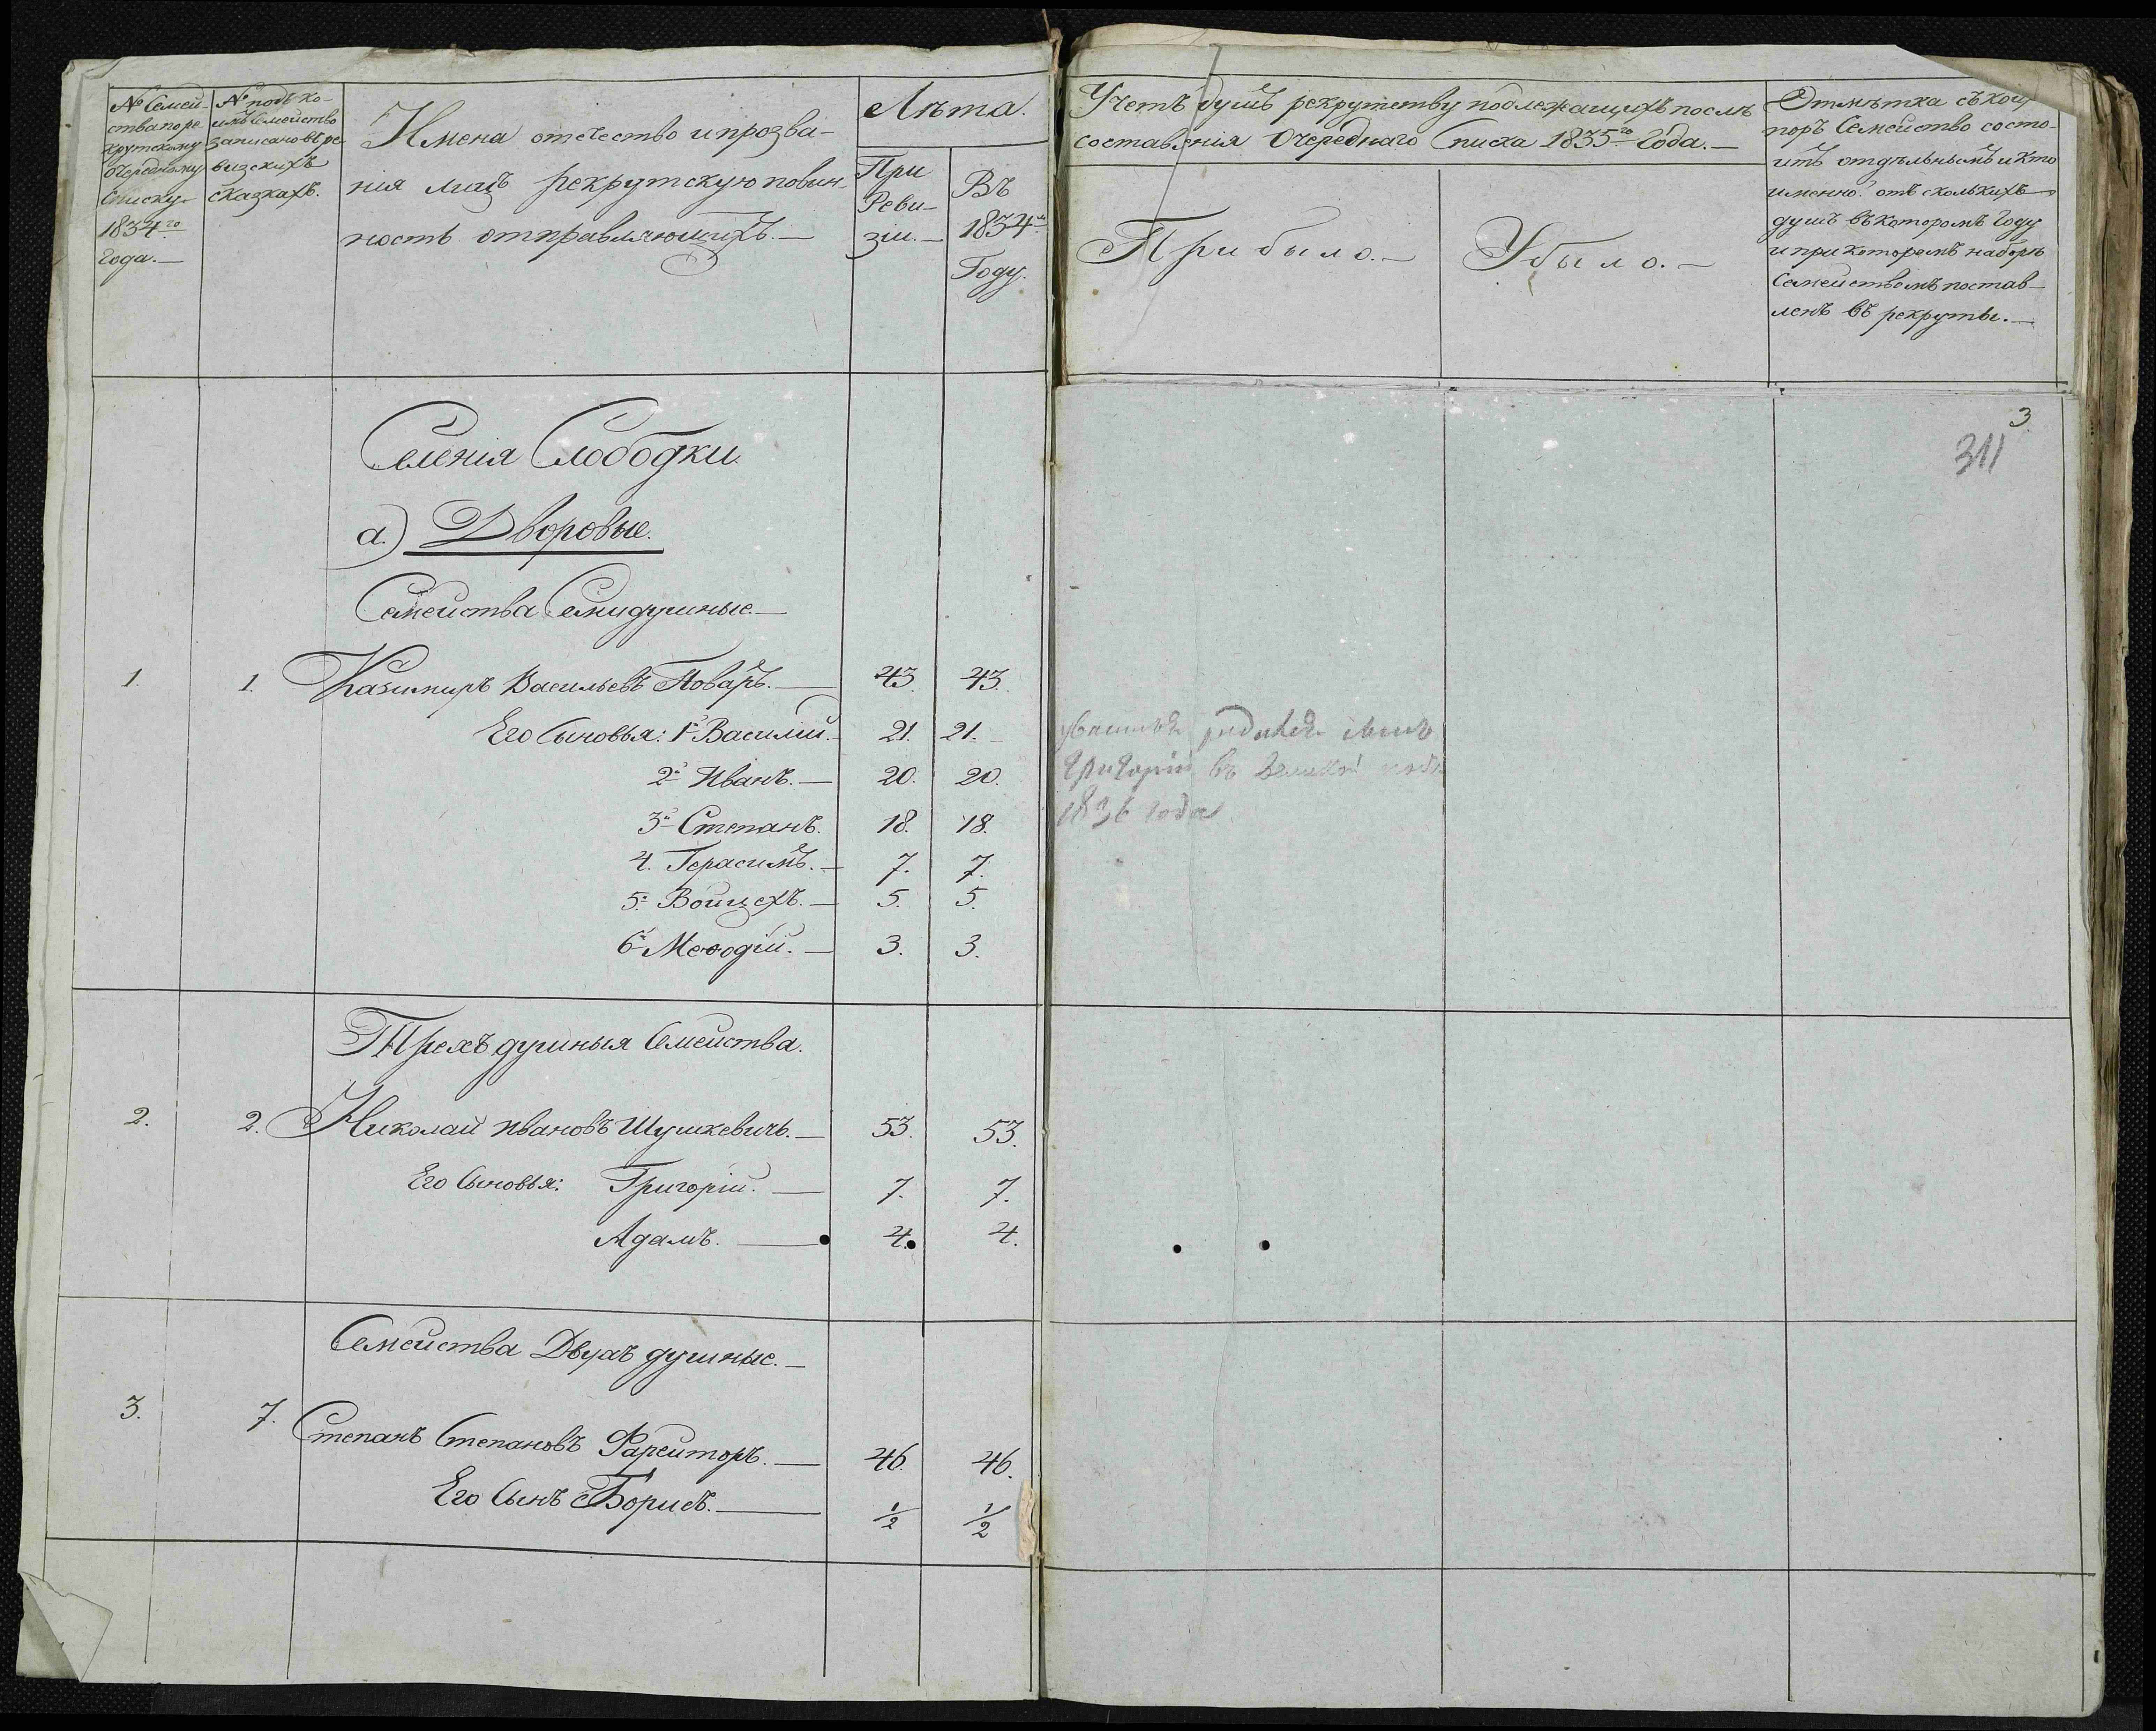 № Семей-
ства по ре
крутскому
Очередному
Списку
1834го
Года.—
№ подъ ко-
имъ Семейство
записано въ ре
визскихъ
сказкахъ.
Имена отечество и прозва-
нія лицъ рекрутскую повин-
ность отправляющихъ.—
Лѣта.
При
Реви-
зіи.—
Въ
1834м
Году.
Учетъ душъ рекрутству подлежащихъ послѣ
составленія Очереднаго Списка 1835го Года.—
Прибыло.—
Убыло.—
Отмѣтка съ коихъ
поръ Семейство состо-
итъ отдѣльнымъ и кто
именно отъ сколькихъ
душъ въ которомъ Году
и при которомъ наборѣ
Семействомъ постав-
ленъ въ рекруты.—
3
311
Селенія Слободки.
а.) Дворовые.
Семейства Семидушные.—
1. 1. Казимиръ Васильевъ Поваръ.— 43. 43.
Его Сыновья: 1й Василий.— 21. 21.
2й Иванъ.— 20. 20.
3й Степанъ. 18. 18.
4. Герасимъ.— 7. 7.
5й Войцехъ.— 5. 5.
6й Меѳодій.— 3. 3.
сынъ
Григорій въ
1836 года
Трехъ душныя Семейства.
2. 2. Николай Ивановъ Шушкевичь.— 53. 53.
Его Сыновья: Григорій.— 7. 7.
Адамъ.— 4. 4.
Семейства Двухъ душные.—
3. 7. Степанъ Степановъ Фарейторъ.— 46. 46.
Его Сынъ Борисъ.— 1/2 1/2